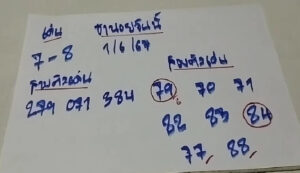 เด่น
ฮานอยวันนี้
7-8
1/6/67
สามตัวเด่น
279 071 384
สองตัวเด่น
79 70 71
82 83 84
77 88